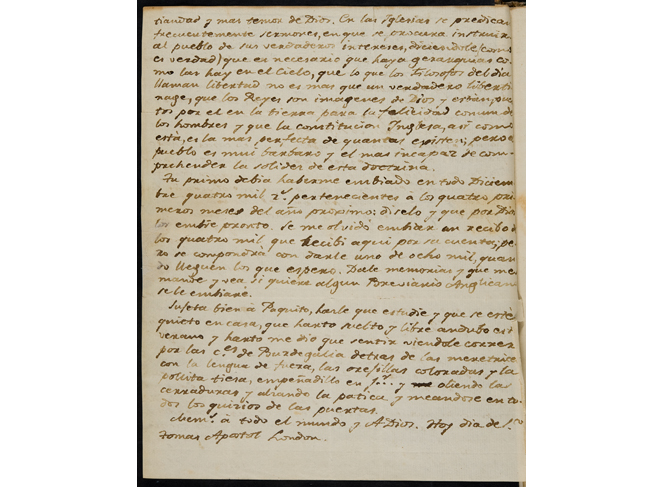 tiandad y mas temor de Dios. En las Iglesias se predican
frecuentemente sermones, en que se procura instruir
al pueblo de sus verdaderos intereses, diciendole (como
es verdad) que es necesario que haya gerarquias co-
mo las hay en el Cielo, que lo que los Filosofos del dia
llaman libertad no es mas que un verdadero liberti-
nage, que los Reyes son imagenes de Dios y estan pues-
tos por el en la tierra para la felicidad comun de
los hombres y que la constitucion Inglesa, asi como
està, es la mas perfecta de quantas existen; pero el
pueblo es mui barbaro y el mas incapaz de com-
prehender la solidez de esta doctrina.
Tu primo debia haberme embiado en todo Diciem-
bre quatro mil r.s pertenecientes à los quatro pri-
meros meses del año proximo: diselo y que por Dios
los embie pronto. Se me olvidó embiar un recibo de
los quatro mil que recibi aqui por su cuenta; pe-
ro se compondrà con darle uno de ocho mil, quan-
do lleguen los que espero. Dale memorias y que me
mande y vea si quiere algun Breviario Anglicano
se le embiarè.
Sujeta bien à Paquito, harle que estudie y que se estè
quieto en casa, que harto suelto y libre andubo est
verano y harto me dio que sentir viendole correr
por las c.es de Burdegalia detras de las meretrices
con la lengua de fuera, las orejillas coloradas y la
pollita tiesa, empeñadillo en y oliendo las
cerraduras y alzando la patica y meandose en to-
dos los quicios de las puertas.
Mem.s à todo el mundo y A Dios. Hoy dia de S.to
Tomas Apostol London.